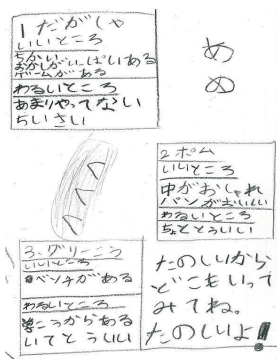 1だがしゃ
いいところ
ちかい
おかしがいっぱいある
ゲームがある
わるいところ
あまりやってない
ちいさい
め
ぬ
2ポム
いいところ
中がおしゃれ
パンがおいしい
わるいところ
ちょととうい
3.グリーこう
いいところ
ベンチがある
わるいところ
こうからある
いてとういい
たのしいから
どこもいって
みてね。
たのしいよ!